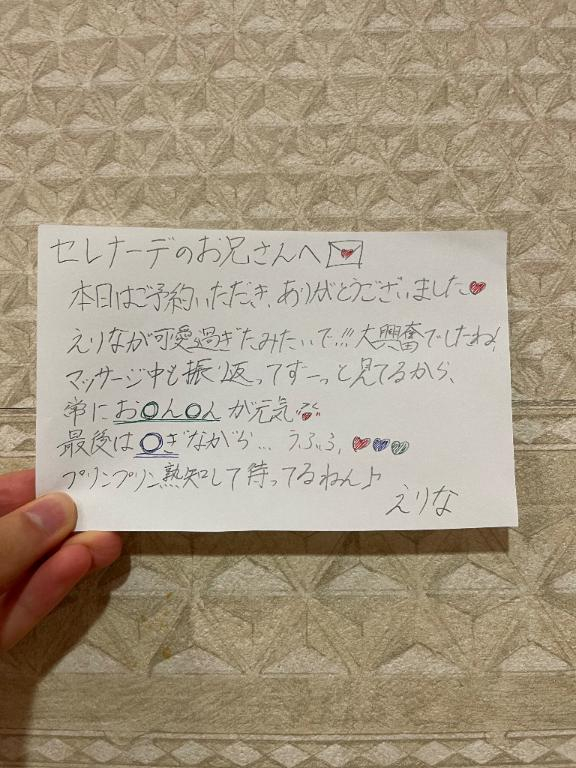 セレナーデのお兄さんへ
本日はご予約いただき、ありがとうございました
えりなが可愛過ぎたみたいで!!!大興奮でしたね!
マッサージ中も振り返ってずーっと見てるから、
常にお〇ん〇んが元気
最後は〇ぎながら…うふふ,
プリンプリン熟知して待ってるねん♪
えりな